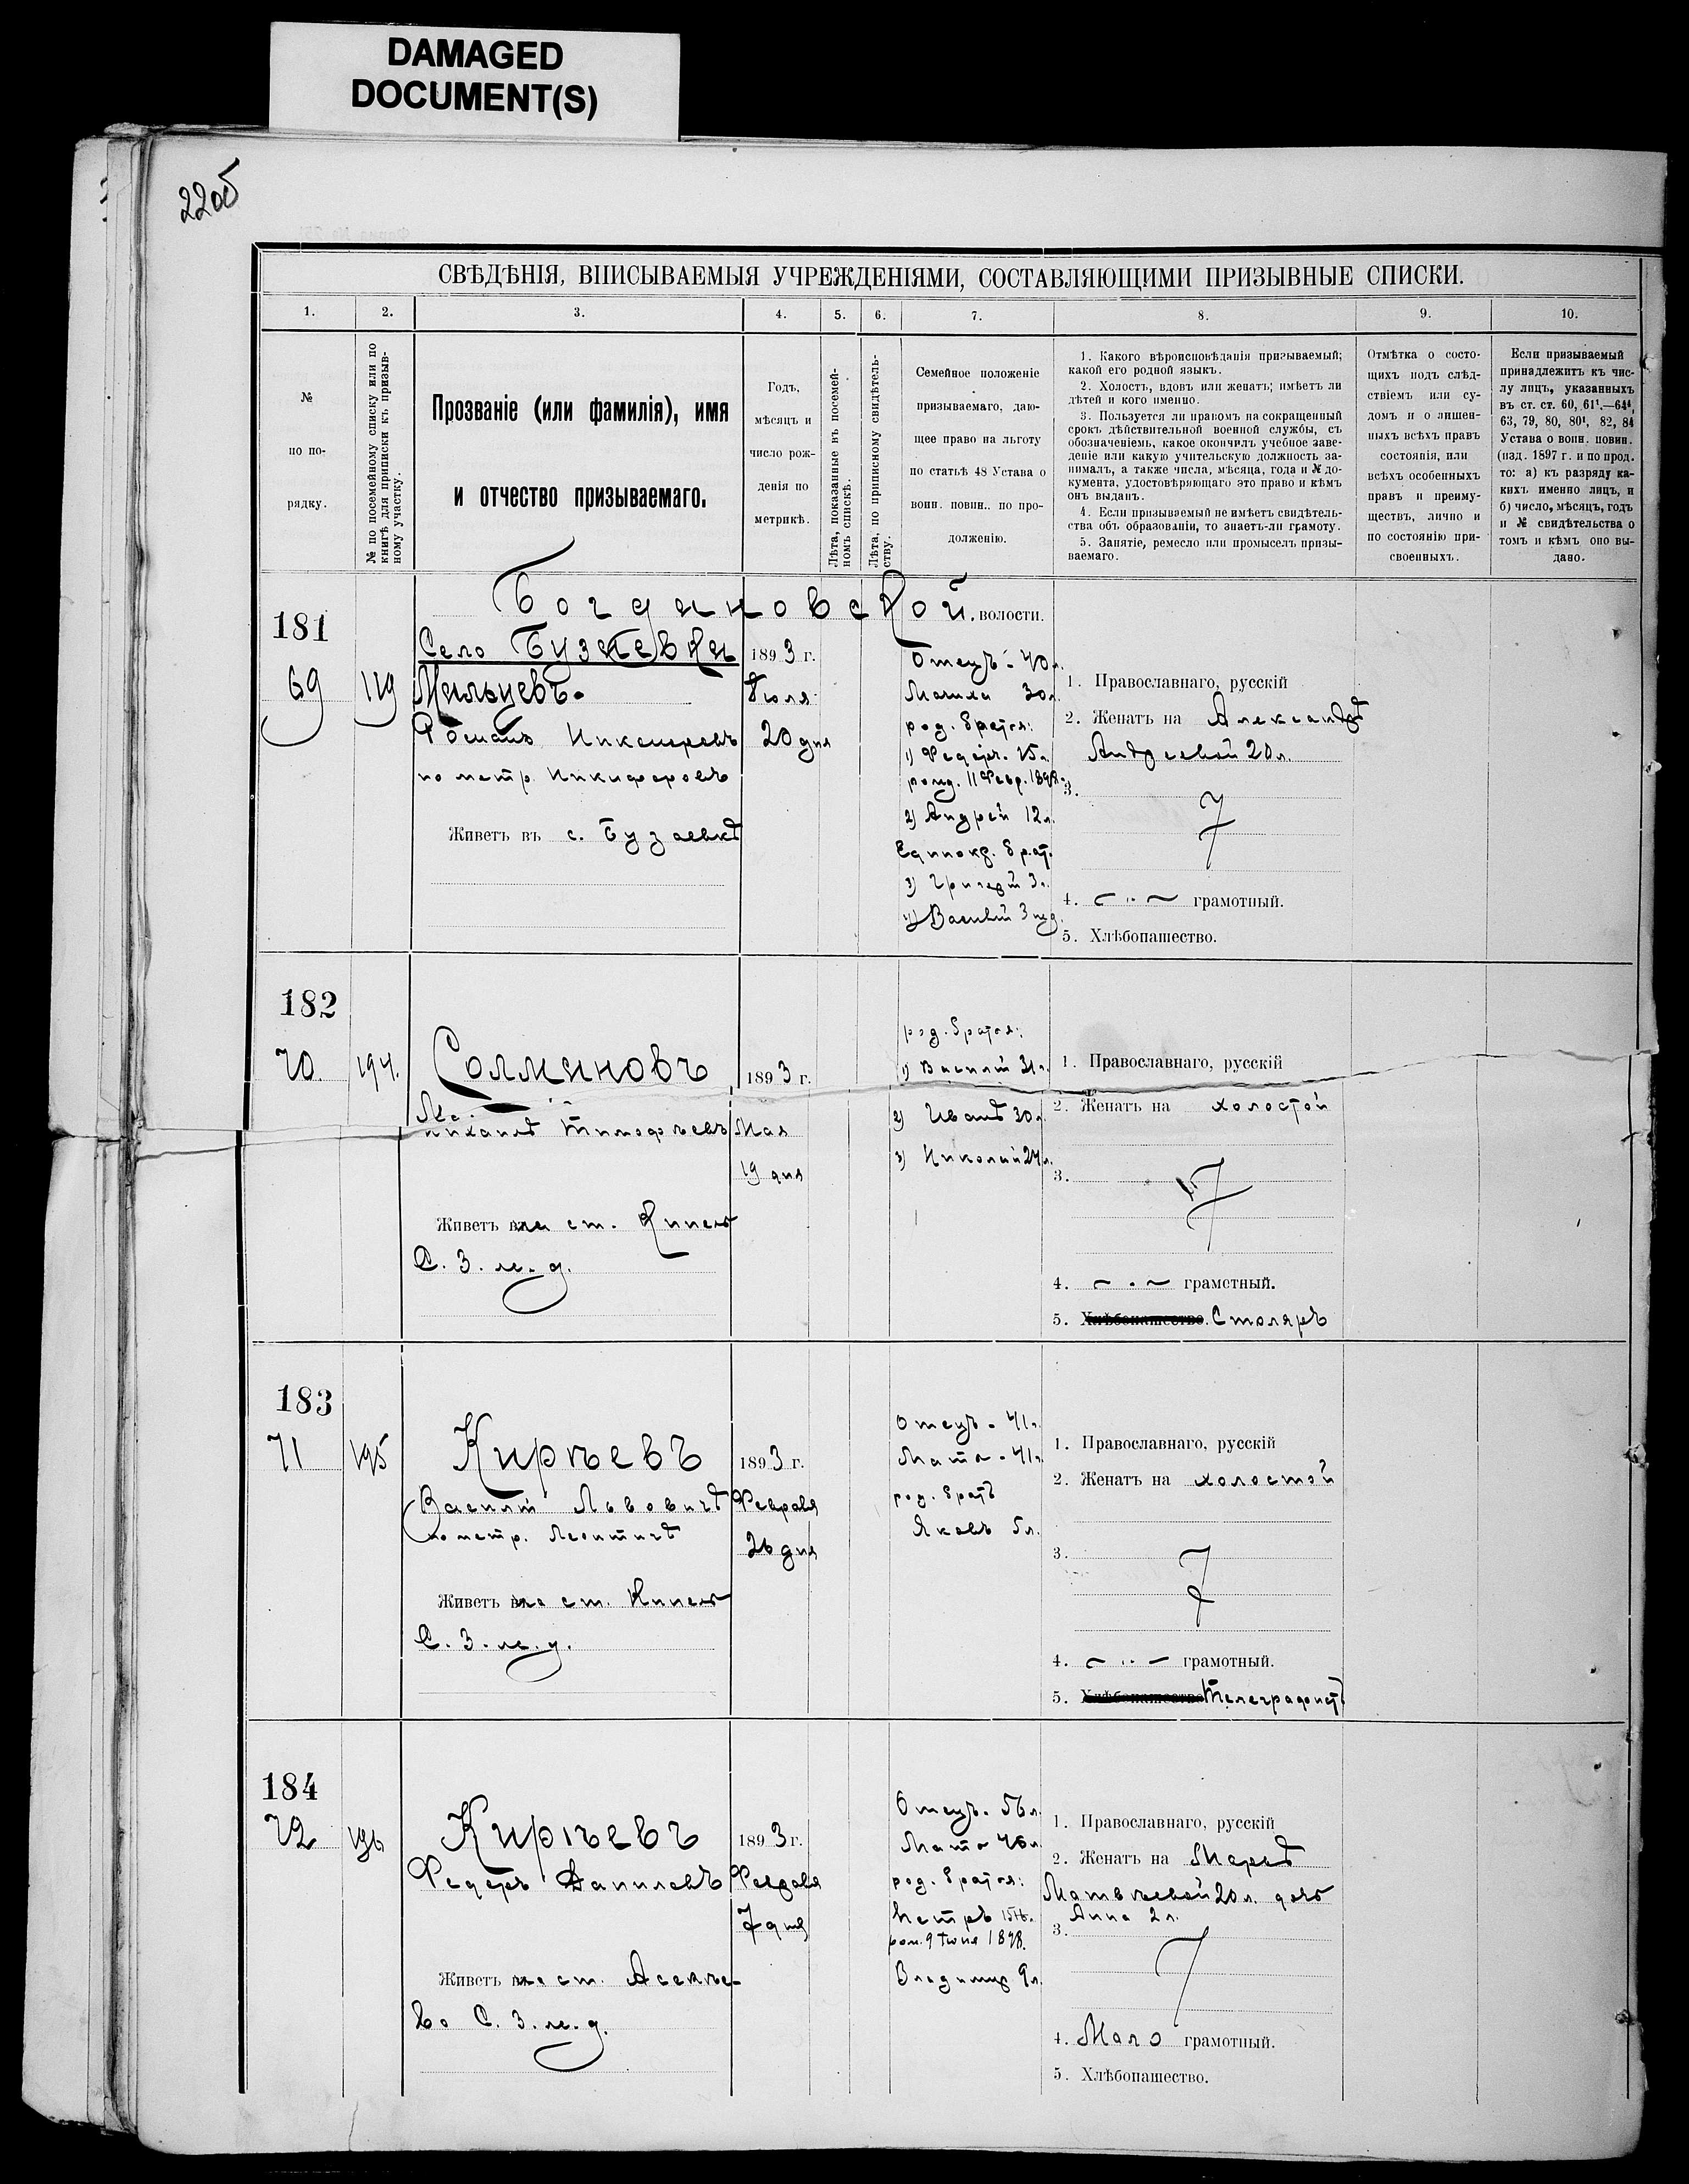 DAMAGED
DOCUMENT(S)
22об
СВѢДѢНІЯ, ВПИСЫВАЕМЫЯ УЧРЕЖДЕНІЯМИ, СОСТАВЛЯЮЩИМИ ПРИЗЫВНЫЕ СПИСКИ.
1. 2. 3. 4. 5. 6. 7. 8. 9. 10.
№
по по-
рядку.
№ по посемейному списку или по
книгѣ для приписки къ призыв-
ному участку.
Прозваніе (или фамилія), имя
и отчество призываемаго.
Годъ,
мѣсяцъ и
число рож-
денія по
метрикѣ.
Лѣта, показанные въ посемей-
номъ спискѣ.
Лѣта, по приписному свидѣтель-
ству.
Семейное положеніе
призываемаго, даю-
щее право на льготу
по статьѣ 48 Устава о
воин. повин.. по про-
долженію.
1. Какого вѣроисповѣданія призываемый;
какой его родной языкъ.
2. Холостъ, вдовъ или женатъ; имѣетъ ли
дѣтей и кого именно.
3. Пользуется ли правомъ на сокращенный
срокъ дѣйствительной военной службы, съ
обозначеніемъ, какое окончилъ учебное заве-
деніе или какую учительскую должность за-
нималъ, а также числа, мѣсяца, года и № до-
кумента, удостовѣряющаго это право и кѣмъ
онъ выданъ.
4. Если призываемый не имѣетъ свидѣтель-
ства объ образованіи, то знаетъ-ли грамоту.
5. Занятіе, ремесло или промыселъ призы-
ваемаго.
Отмѣтка о состо-
щихъ подъ слѣд-
ствіемъ или су-
домъ и о лишен-
ныхъ всѣхъ правъ
состоянія, или
всѣхъ особенныхъ
правъ и преиму-
ществъ, лично и
по состоянію при-
своенныхъ.
Если призываемый
принадлежитъ къ чис-
лу лицъ, указанныхъ
въ ст. ст. 60, 61¹.—64⁴,
63, 79, 80, 80¹, 82, 84
Устава о воин. повин.
(изд. 1897 г. и по прод.
то: а) къ разряду ка-
кихъ именно лицъ, и
б) число, мѣсяцъ, годъ
и № свидѣтельства о
томъ и кѣмъ оно вы-
дано.
Богдановской. волости.
181
69
119
Село Бузаевка
Мальцевъ.
Романъ
по метр. Никифоровъ
Живетъ въ с. Бузаевкѣ
1893 г.
Іюля
20 дня
Отецъ - 40 л.
Мачиха 30 л.
род. братья:
1) Федоръ. 15 л.
рожд. 11 Февр. 1898 г.
2) Андрей 12 л.
Единокр. брат.
3) Григорій 3 л.
4) Василій 3 нед.
1. Православнаго, русскій
2. Женатъ на Александрѣ
Андреевой 20 л.
3.
4. грамотный.
5. Хлѣбопашество.
182
70.
194.
Солминовъ
Михаилъ Тимофѣевъ
Живетъ на ст. Кинель
С. З. ж. д.
1893 г.
Мая
19 дня
род. братья:
1) Василій 31 л.
2) Иванъ 30 л.
3) Николай 24 л.
1. Православнаго, русскій
2. Женатъ на холостой
3.
4. грамотный.
5. Хлѣбопашество. Столяръ
183
71
195
Кирѣевъ
Василій Львовичъ
по метр. Леонтичъ
Живетъ на ст. Кинель
С. З. ж. д.
1893 г.
Февраля
26 дня
Отецъ - 41 л.
Мать - 41 л.
род. братъ
Яковъ 5 л.
1. Православнаго, русскій
2. Женатъ на холостой
3.
4. грамотный.
5. Хлѣбопашество Телеграфистъ
184
72
196
Кирѣевъ
Федоръ Даниловъ
Живетъ на ст. Асекѣе-
во С. З. ж. д.
1893 г.
Февраля
7 дня
Отецъ. 56 л.
Мать 46 л.
род. братья:
Петръ 15 л.
рож. 9 Іюня 1898.
Владимир 9 л.
1. Православнаго, русскій
2. Женатъ на Марьѣ
Матвѣевой 20 л. дочь
Анна 2 л.
3.
4. Мало грамотный.
5. Хлѣбопашество.